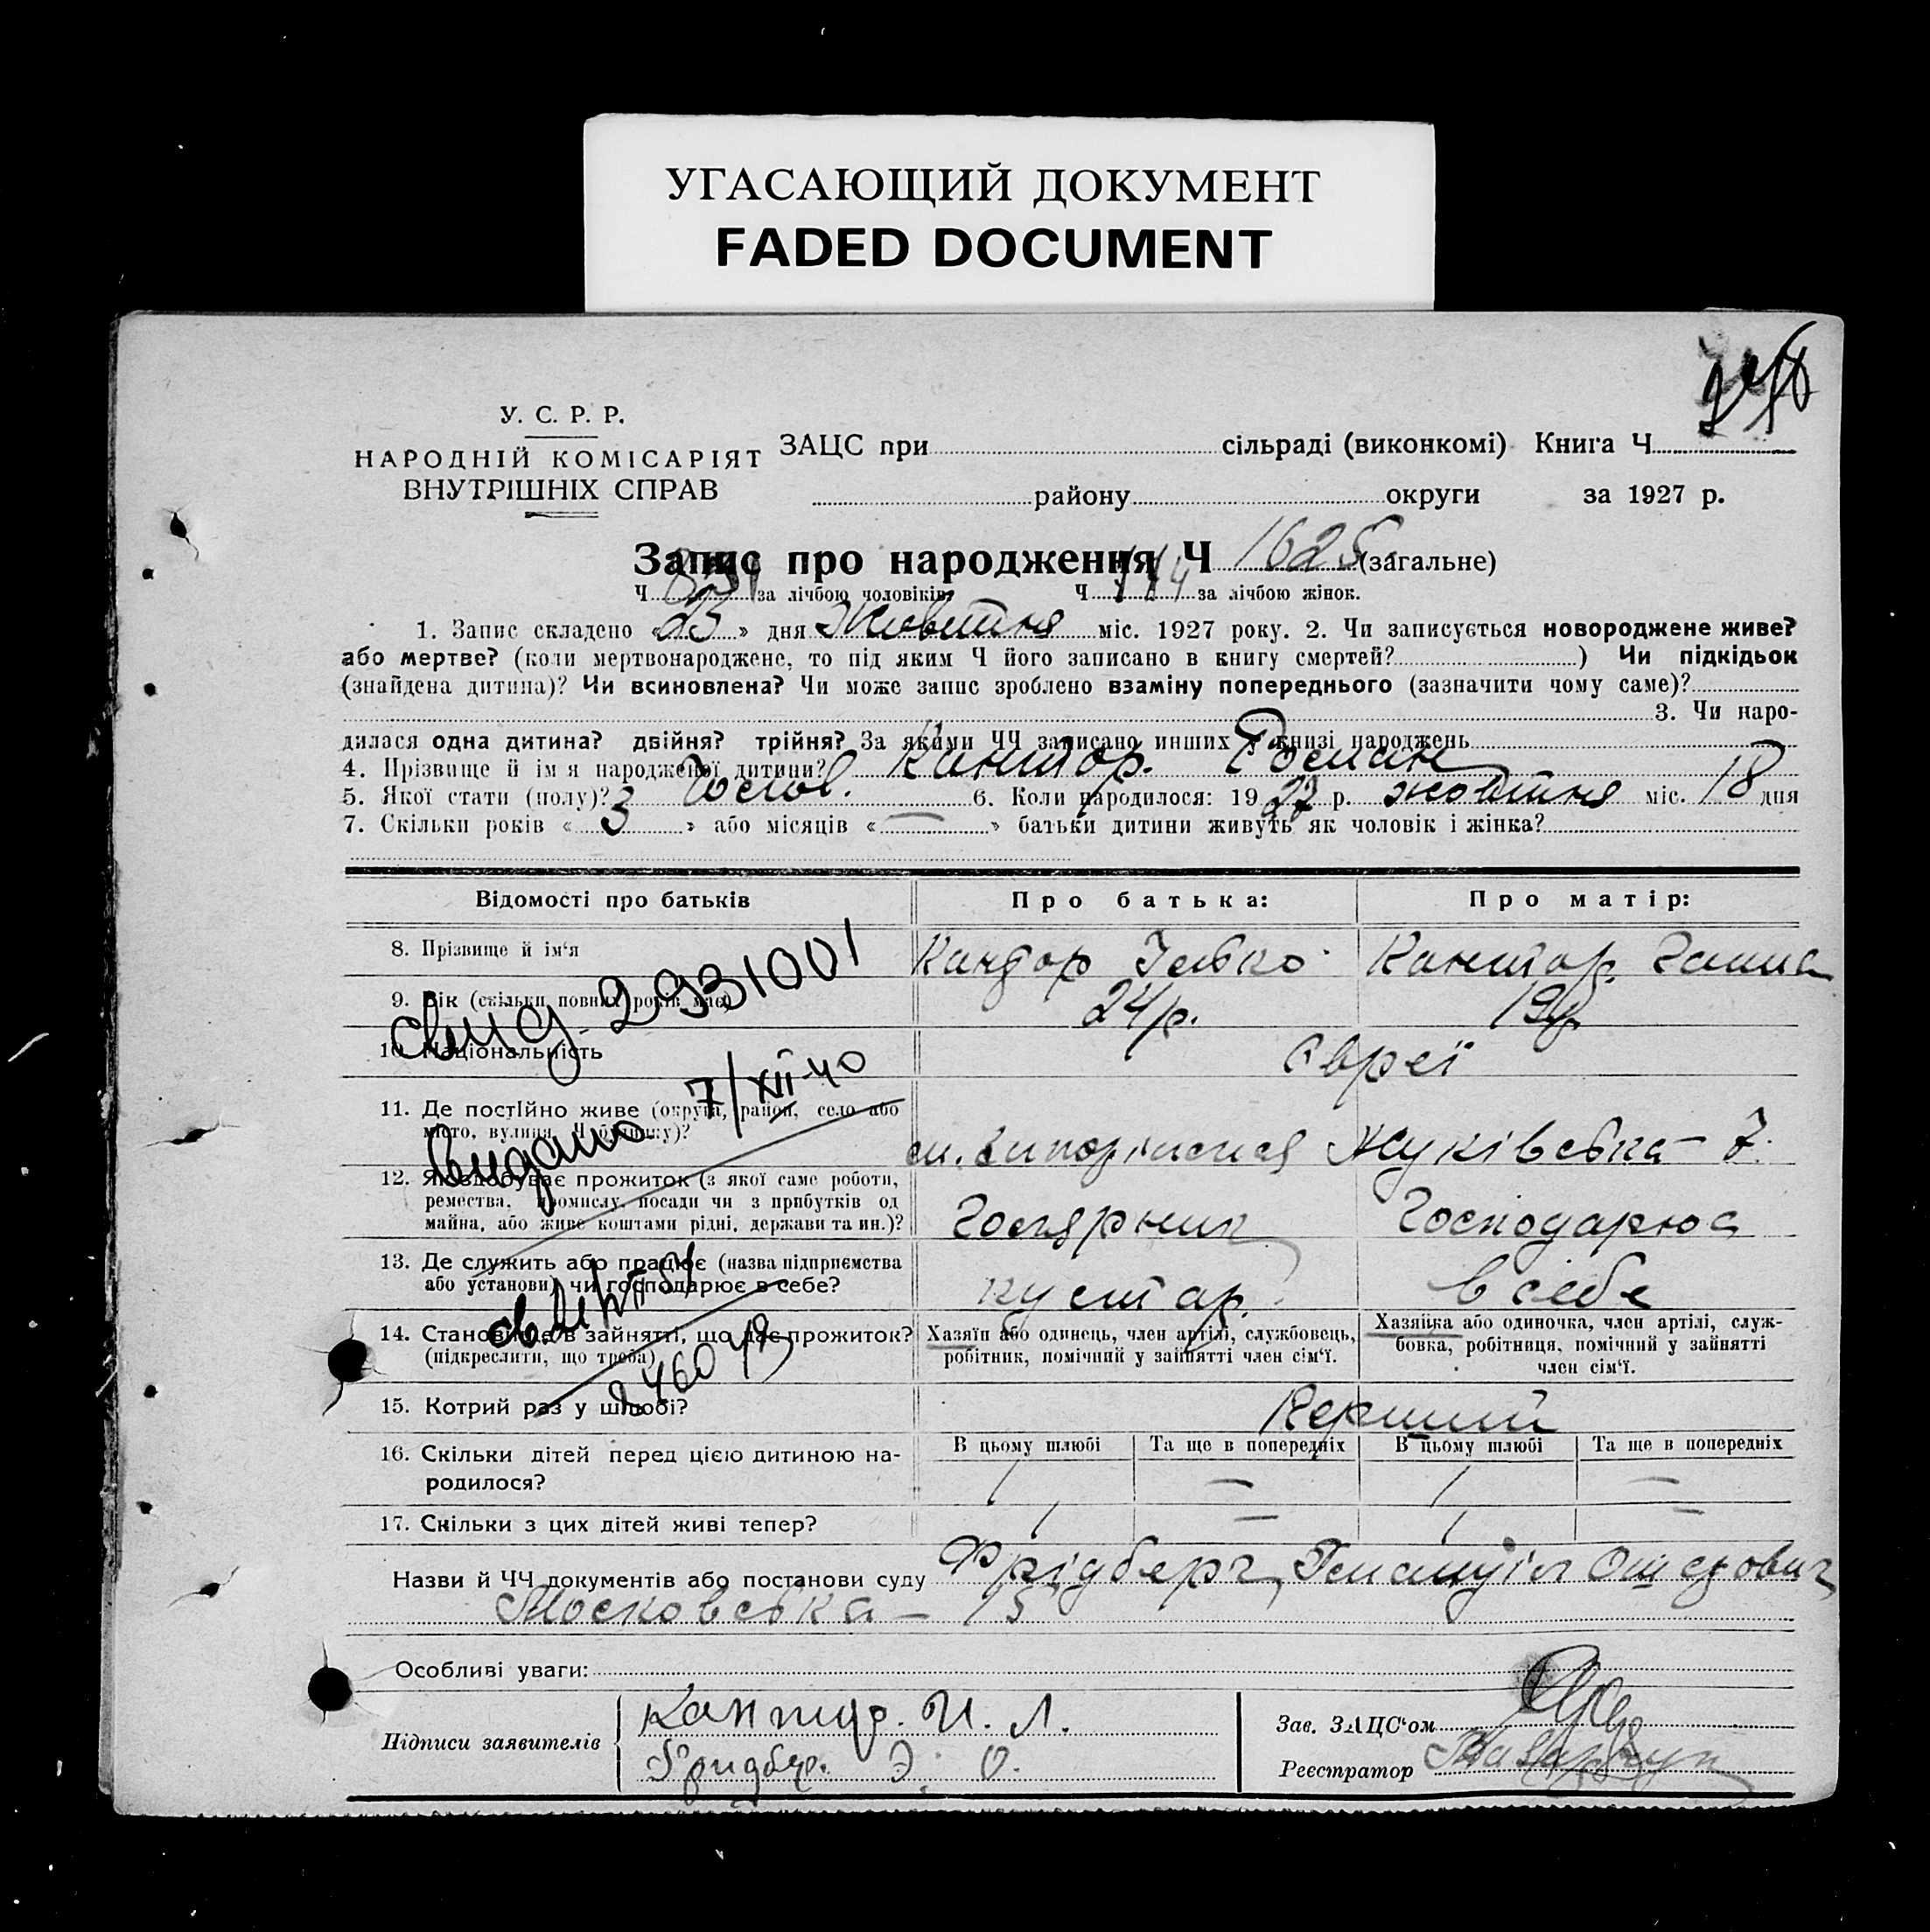 УГАСАЮЩИЙ ДОКУМЕНТ
FADED DOCUMENT
У. С. Р. Р.
НАРОДНІЙ КОМІСАРІЯТ
ВНУТРІШНІХ СПРАВ
ЗАЦС при сільраді (виконкомі) Книга Ч
району округи за 1927 р.
Запис про народження Ч 1625 (загальне)
Ч за лічбою чоловіків. Ч за лічбою жінок.
1. Запис складено «23» дня Жовтня міс. 1927 року. 2. Чи записується новороджене живе?
або мертве? (коли мертвонароджене, то під яким Ч його записано в книгу смертей? ) Чи підкідьок
(знайдена дитина)? Чи всиновлена? Чи може запис зроблено взаміну попереднього (зазначити чому саме)?
3. Чи наро-
дилася одна дитина? двійня? трійня? За якими ЧЧ записано инших у книзі народжень
4. Прізвище й ім'я народженої дитини? Кантор. Роман
5. Якої стати (полу)? Чолов. 6. Коли народилося: 1927 р. жовтня міс. 18 дня
7. Скільки років «3» або місяців «—» батьки дитини живуть як чоловік і жінка?
Відомості про батьків Про батька: Про матір:
8. Прізвище й ім'я Кантор Кантор
9. Вік (скільки повних років має) 24 р. 19 р.
свид. 2931001
10. Національність Євреї
Видано 7/XII-40
11. Де постійно живе (округа, район, село або
місто, вулиця, Ч будинку)? м. Запоріжжя Жуківська — 7.
12. Як здобуває прожиток (з якої саме роботи,
ремества, промислу, посади чи з прибутків од
майна, або живе коштами рідні, держави та ин.)? Господарює
13. Де служить або працює (назва підприємства
або установи) чи господарює в себе? кустар. в себе
14. Становище в зайнятті, що дає прожиток?
(підкреслити, що треба)
Хазяїн або одинець, член артілі, службовець,
робітник, помічний у зайнятті член сім'ї.
Хазяйка або одиночка, член артілі, служ-
бовка, робітниця, помічний у зайнятті
член сім'ї.
15. Котрий раз у шлюбі? Перший
16. Скільки дітей перед цією дитиною на-
родилося?
В цьому шлюбі Та ще в попередніх В цьому шлюбі Та ще в попередніх
1 — 1 —
17. Скільки з цих дітей живі тепер? 1 — 1 —
Назви й ЧЧ документів або постанови суду Фрідберг
Московська — 15
Особливі уваги:
Підписи заявителів Кантор. И. Л.
Фридбер. Э. О.
Зав. ЗАЦС'ом
Реєстратор